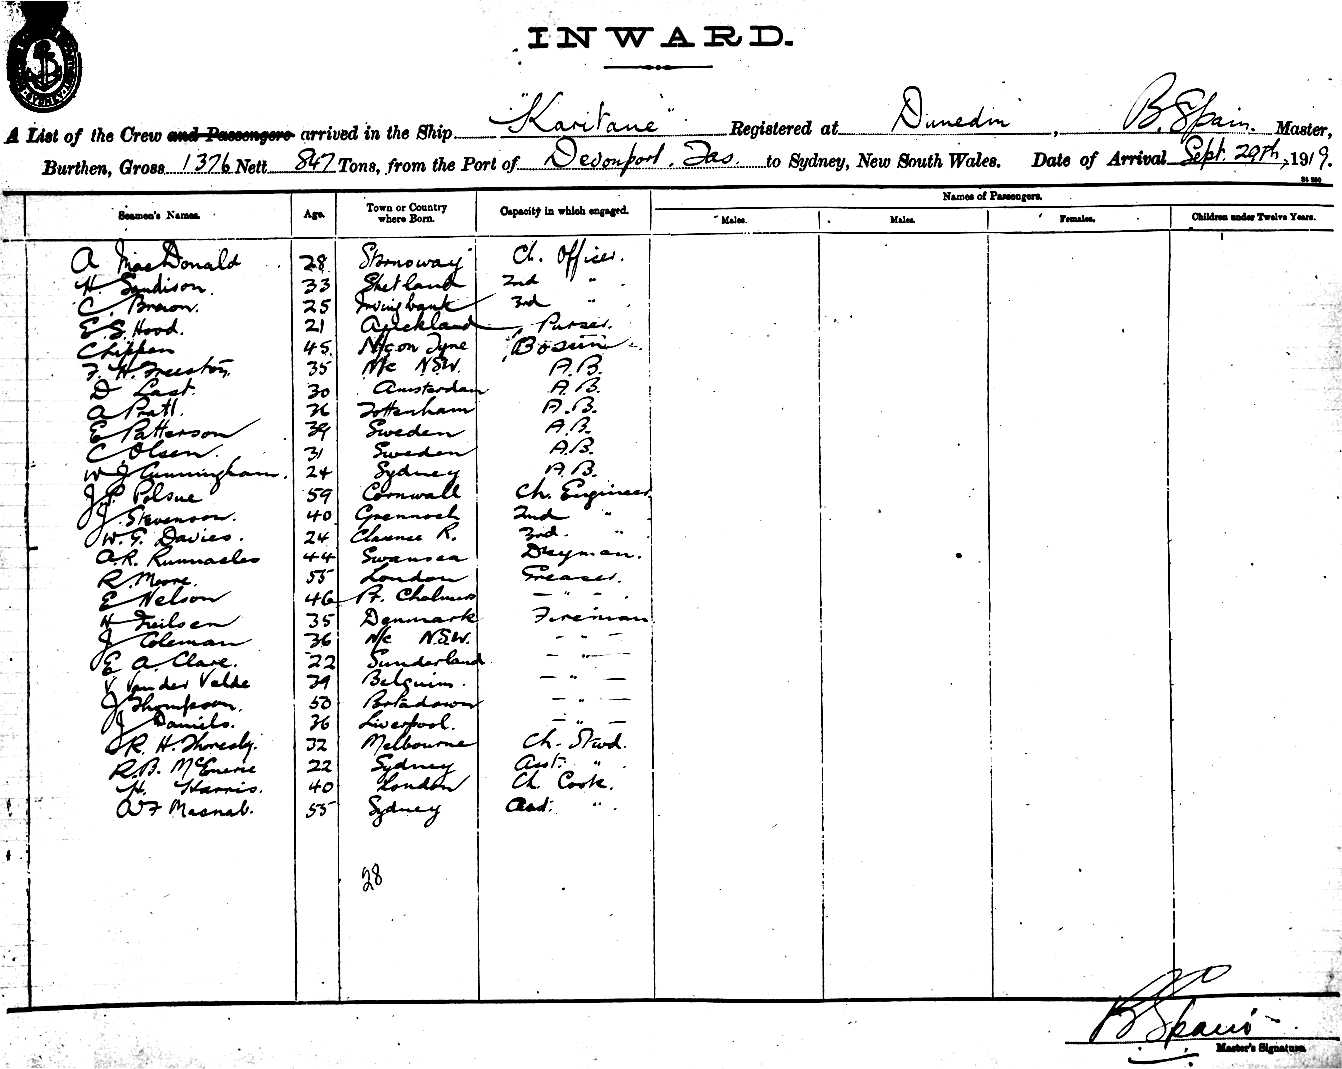 INWARD.
A List of the Crew and Passengers arrived in the Ship "Karitane" Registered at Dunedin, B. Spain. Master,
Burthen, Gross 1376 Nett 847 Tons, from the Port of Devonport, Tas. to Sydney, New South Wales. Date of Arrival Sept. 29th, 1919.
Names of Passengers.
Seamen's Names. Age. Town or Country where Born. Capacity in which engaged. Males. Males. Females. Children under Twelve Years.
A MacDonald 28 Stornoway Ch. Officer.
H. Sandison. 33 Shetland 2nd "
C. Brown. 25 3rd "
E S. Hood. 21 Auckland Purser.
Chippen 45 N/c on Tyne Bosun
F. H. 35 N/c NSW. A.B.
D Last. 30 Amsterdam A.B.
A Pratt. 36 Tottenham A.B.
E Patterson 39 Sweden A.B.
C Olsen. 31 Sweden A.B.
W J Cunningham. 24 Sydney A.B.
J. P. Polsue 59 Cornwall Ch. Engineer
J. Stevenson. 40 Greenock 2nd "
W. G. Davies. 24 Clarence R. 3rd. "
A. R. Runnacles 44 Swansea Dkyman.
R. Moore. 55 London Greaser.
E Nelson 46 Pt. Chalmers - " -
H Neilsen 35 Denmark Fireman
J Coleman 36 N/c N.S.W. - " -
E A. Clare. 22 Sunderland - " -
V Van der Velde 39 Belguim. - " -
J Thompson. 50 Portadown - " -
J Daniels. 36 Liverpool. - " -
R. H. Thoresby. 32 Melbourne Ch. Stwd.
R. B. McEnerie 22 Sydney Asst. "
H. Harris. 40 London Ch. Cook.
W F Macnab. 55 Sydney Asst. "
28
B Spain
Master's Signature.